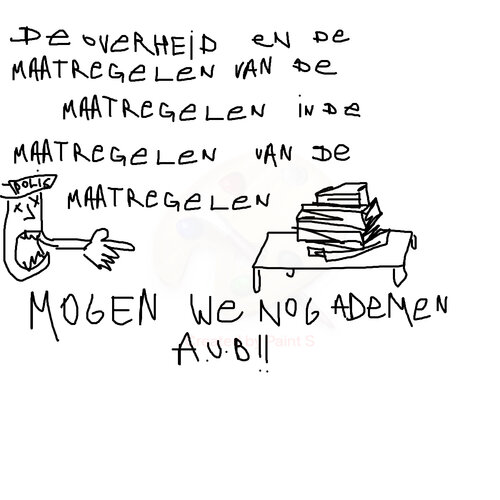 De OVERHEID EN De
MAATREGELEN VAN De
MAATREGELEN IN De
MAATREGELEN VAN De
POLIS
MAATREGELEN
MOGEN We NOG ADEMEN
A.U.B!!